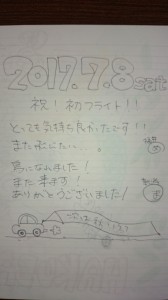 2017.7.8 sat
祝！初フライト！！
とっても気持ち良かったです！！
また飛びたい…
鳥になれました！
また来ます！
ありがとうございました！